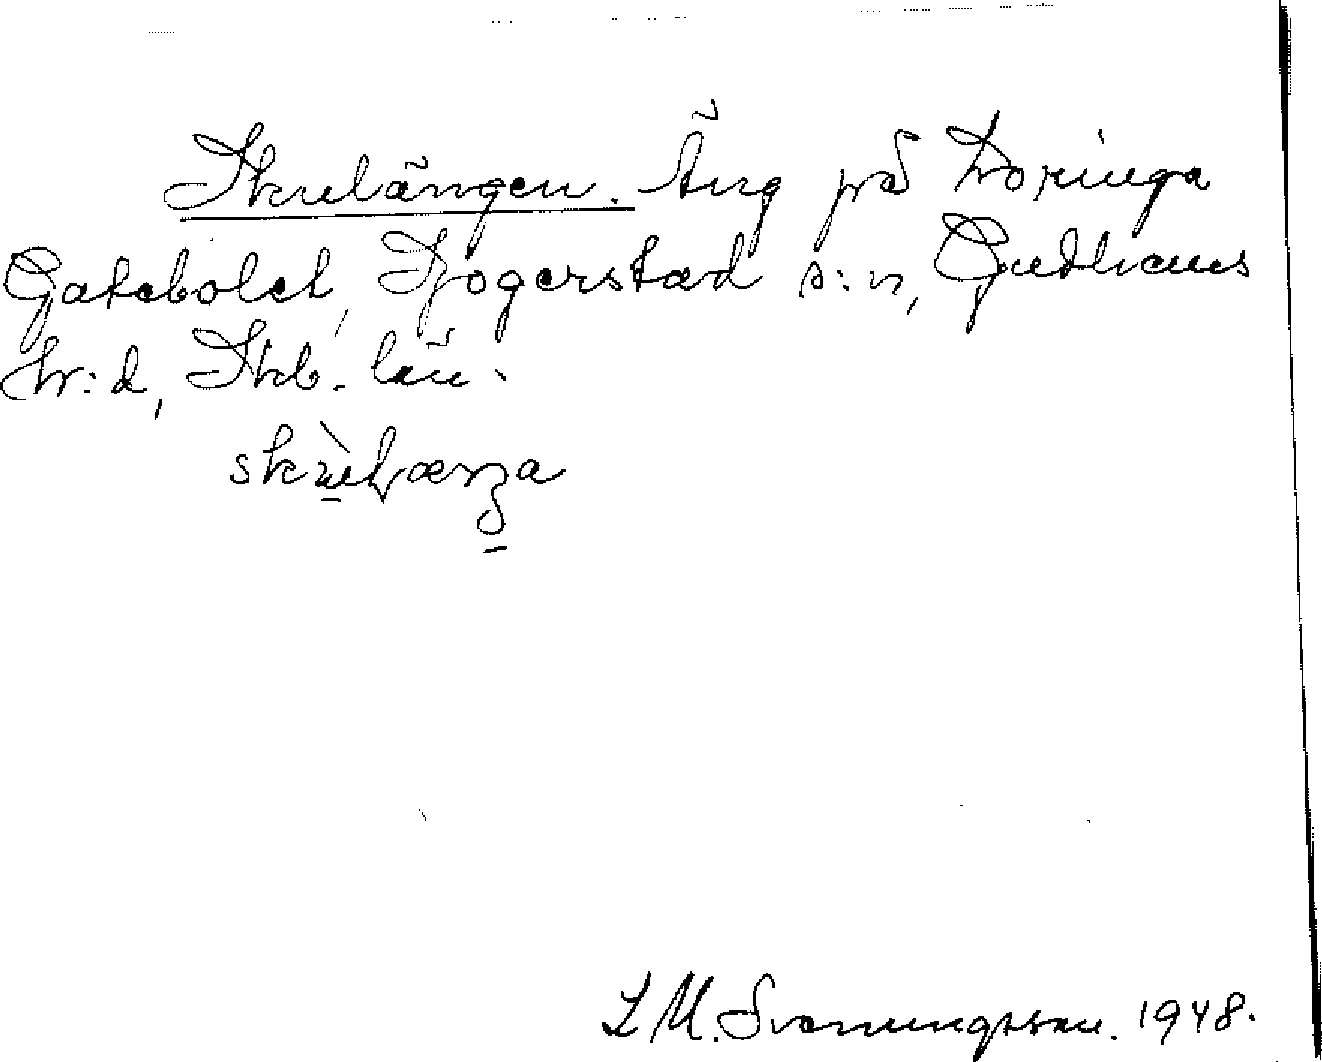 Skrelängen. Äng på Doringa
Gatebolet, Fjogerstad s:n, Gudhems
hr:d, Skb. län.
L M. Svenningsson. 1948.